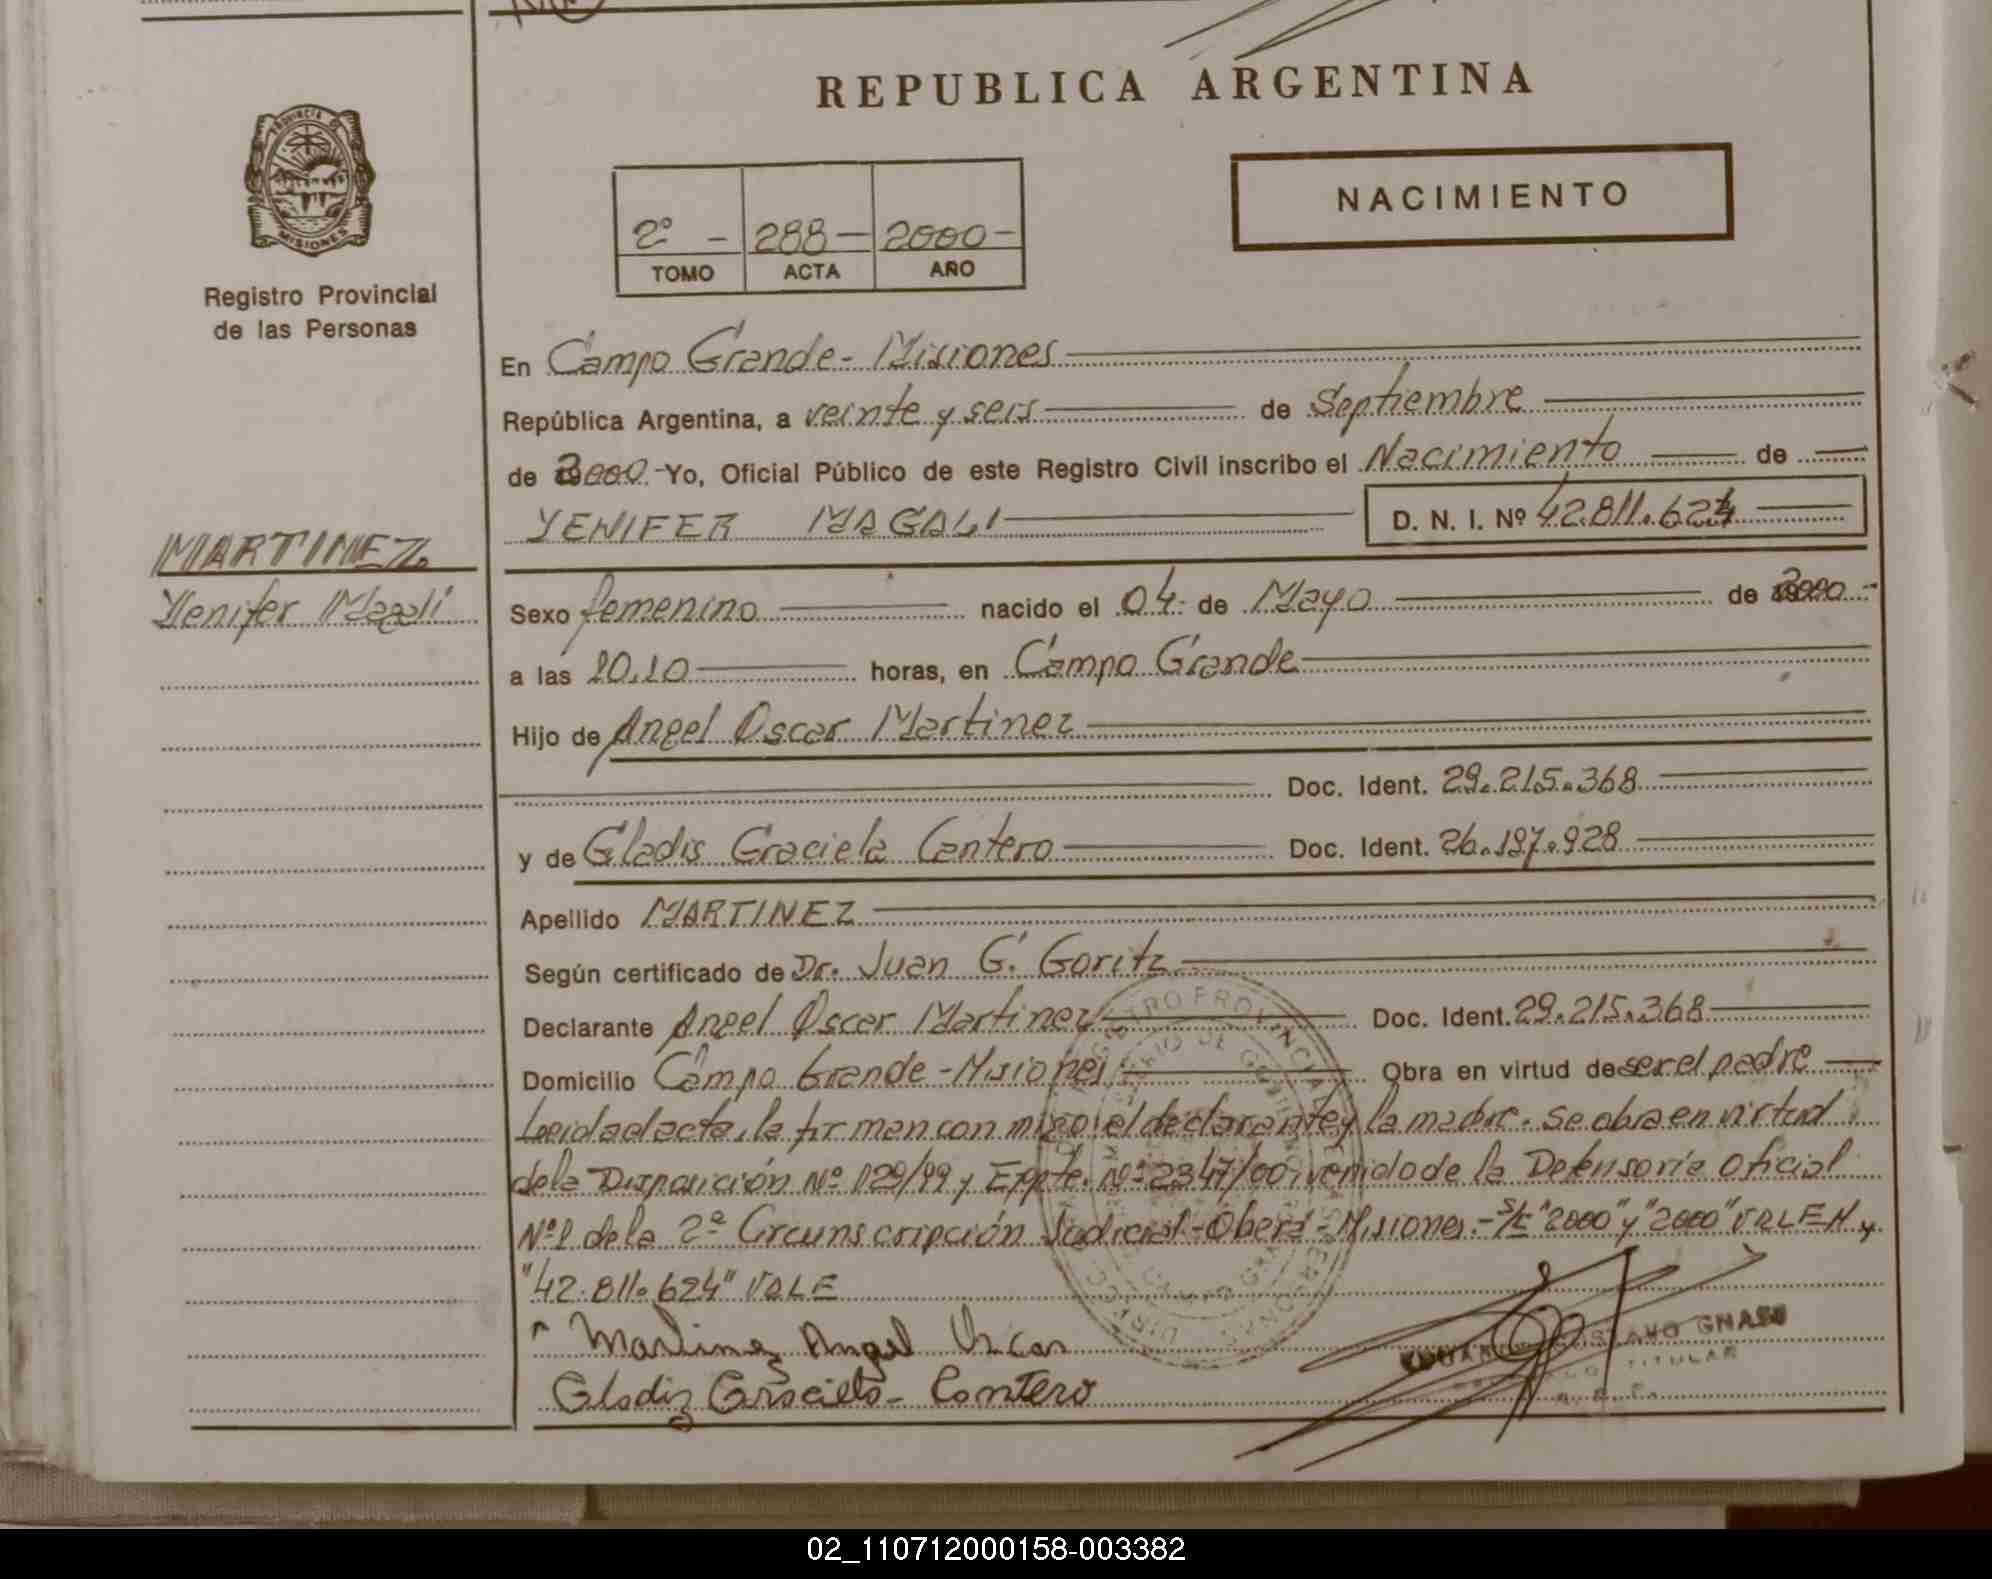 REPUBLICA ARGENTINA
PROVINCIA DE
MISIONES
Registro Provincial
de las Personas
NACIMIENTO
2º - 288 - 2000 -
TOMO ACTA AÑO
En Campo Grande - Misiones
República Argentina, a veinte y seis de Septiembre
de 2000 - Yo, Oficial Público de este Registro Civil inscribo el Nacimiento de
YENIFER MAGALI D. N. I. Nº 42.811.624
MARTINEZ
Yenifer Magalí
Sexo femenino nacido el 04 - de Mayo de 2000 -
a las 10.10 horas, en Campo Grande
Hijo de Angel Oscar Martinez
Doc. Ident. 29.215.368
y de Gladis Graciela Cantero Doc. Ident. 26.197.928
Apellido MARTINEZ
Según certificado de Dr. Juan G. Goritz
Declarante Angel Oscar Martinez Doc. Ident. 29.215.368
Domicilio Campo Grande - Misiones Obra en virtud de ser el padre
Leida el acta, la firman conmigo el declarante y la madre. Se obra en virtud
de la Disposición Nº 129/99 y Expte. Nº 2347/00, venido de la Defensoría Oficial
Nº 1 de la 2ª Circunscripción Judicial - Oberá - Misiones. - S/t "2000" y "2000" VALEN y
"42.811.624" VALE
Martinez Angel Oscar
Gladiz Graciela Contero
GUSTAVO GNASS
TITULAR
02_110712000158-003382